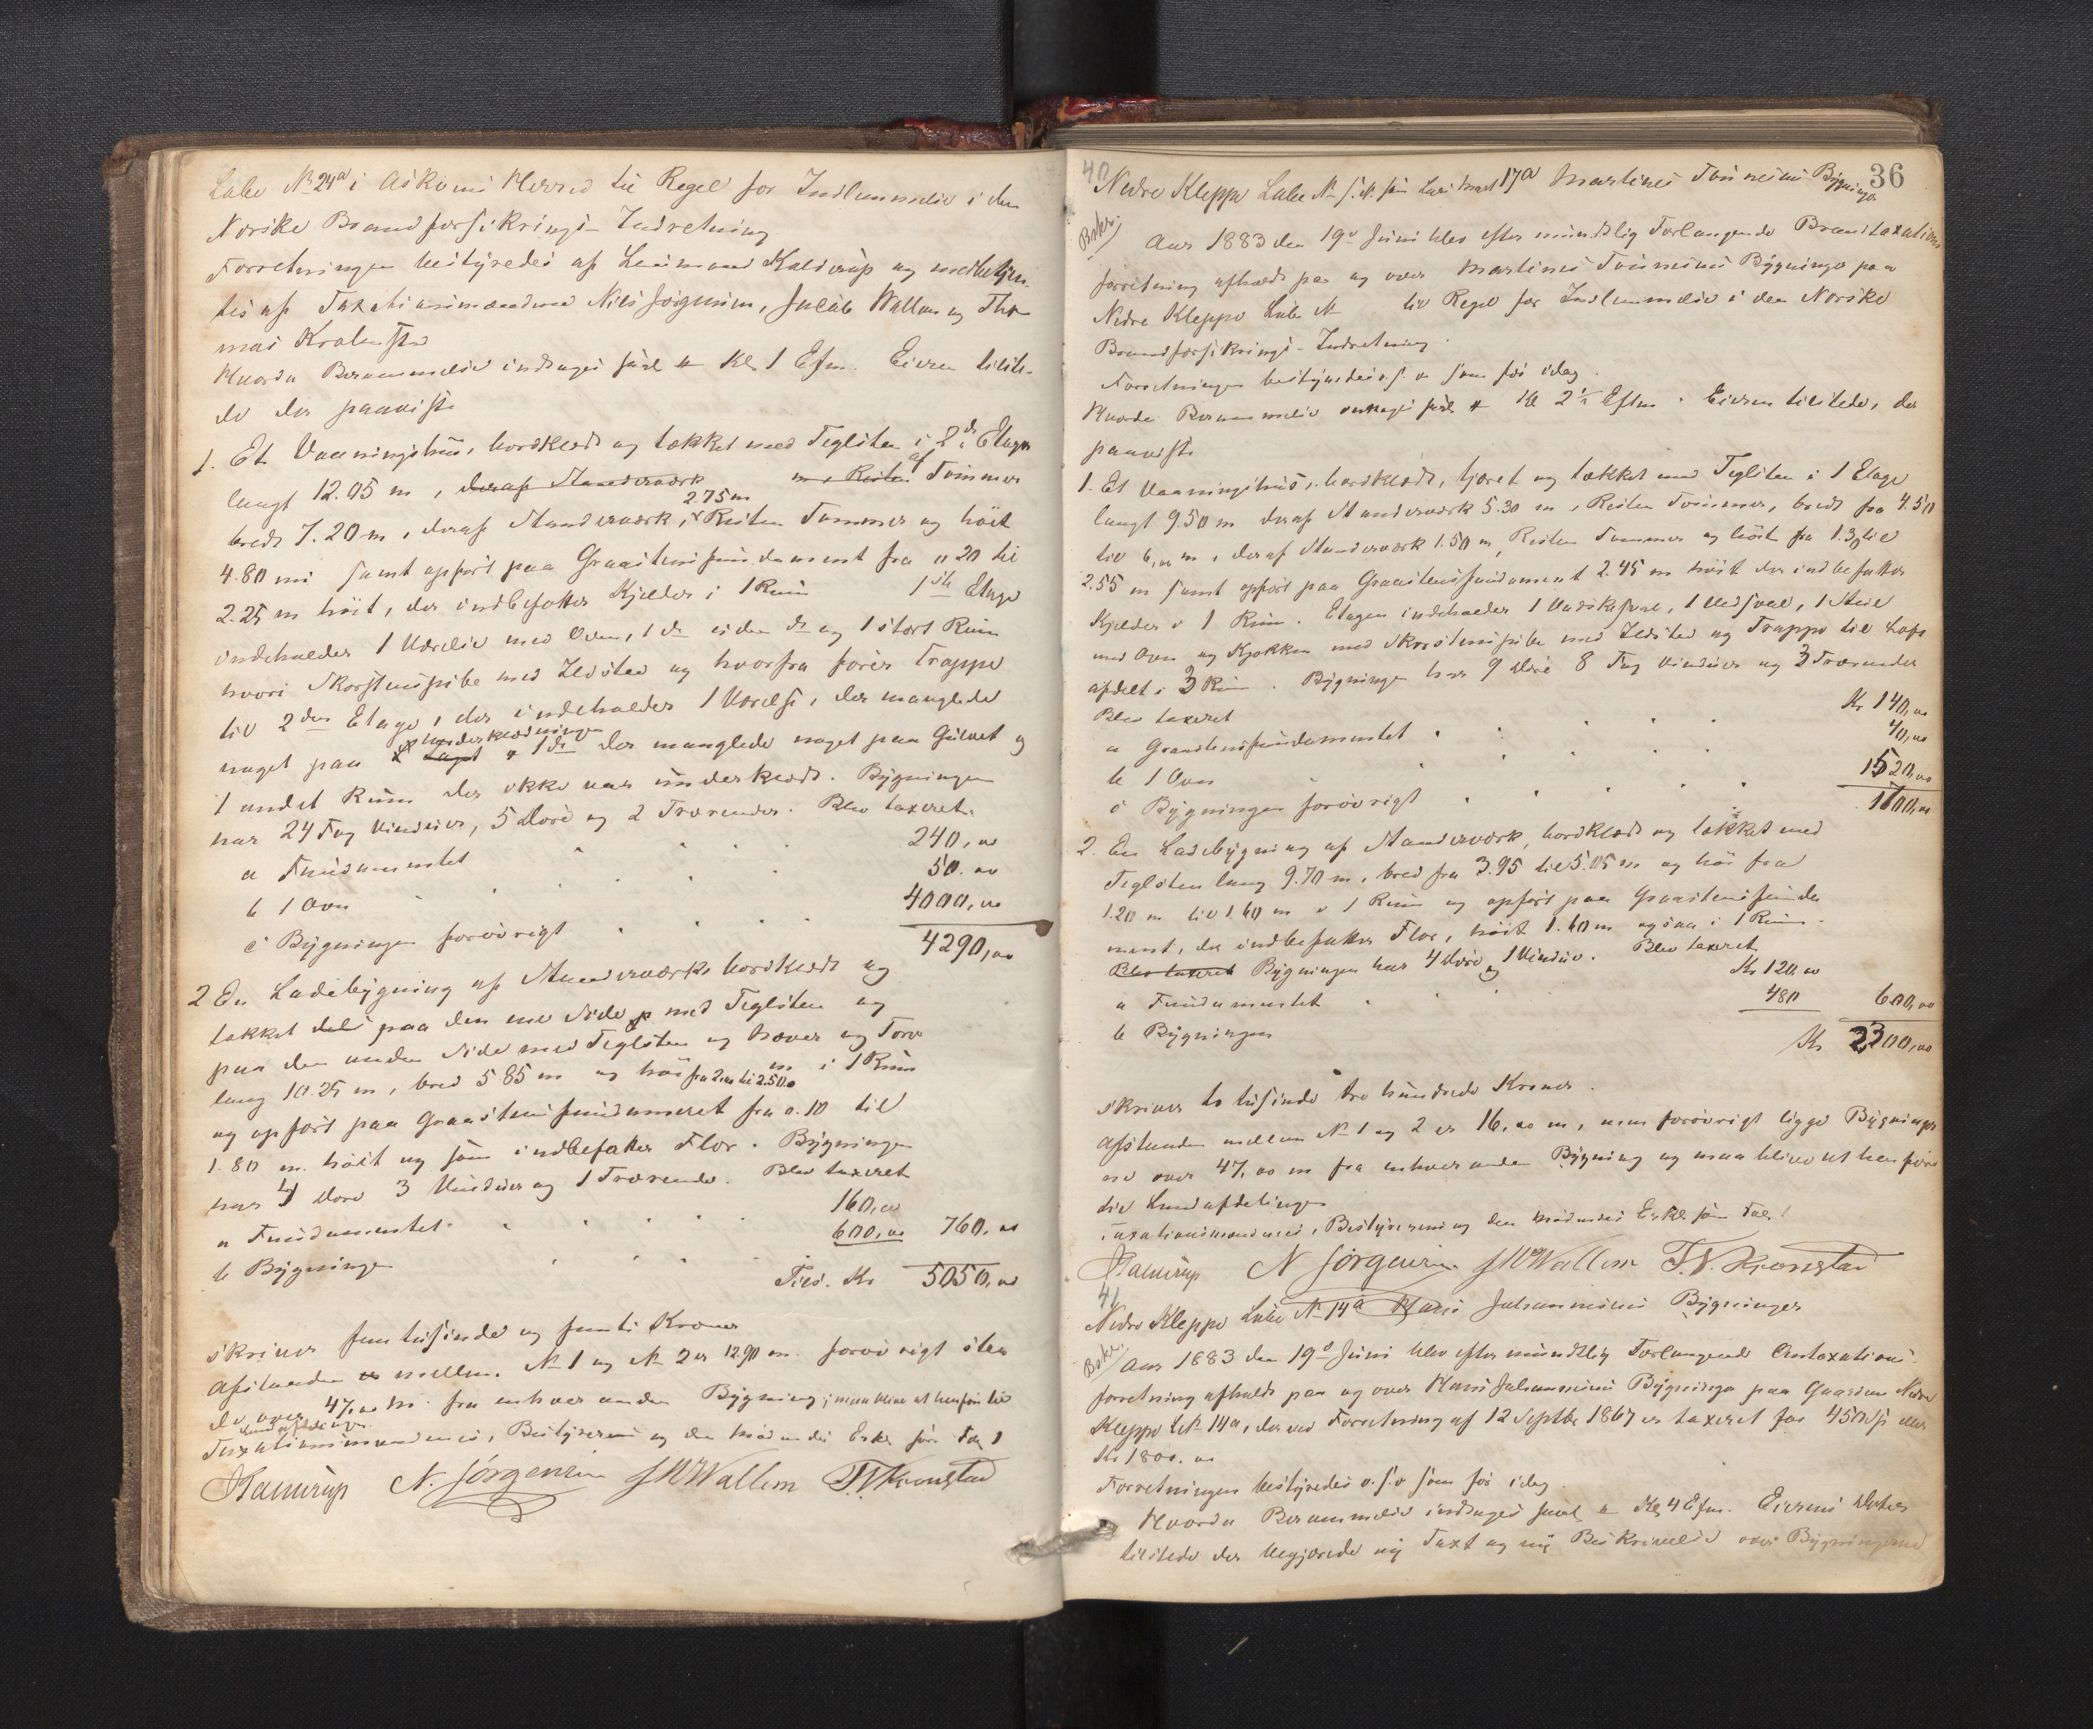 Løbe N° 24a i Askøens Herred til Regel for Indlemmelse i den
Norske Brandforsikrings-Indretning
Forretningen bestyredes af Lensmand Kalderup og medbetjen-
tes af Taxationsmændene Nils Jørgensen, Jakob Wallem og Tho-
mas Kronstad
Hvorda Berammelse indtages Kl 1 Efm. Eieren tilste-
de der paaviste
1. Et Vaaningshus, bordklædt og tækket med Teglsten i 2de Etager
langt 12.05 m, deraf Standerværk m, Resten af Tømmer
bredt 7.20 m, deraf Standerværk 2.75 m, Resten Tømmer og høit
4.80 m samt opført paa Graastensfundament fra 0.20 til
2.25 m høit, der indbefatter Kjelder i 1 Rum 1ste Etage
indeholder 1 Værelse med Ovn, 1 do uden do og 1 stort Rum
hvori Skorstenspibe med Ildsted og hvorfra fører Trappe
til 2den Etage, der indeholder 1 Værelse, der manglede
noget paa Underklædningen 1 do der manglede noget paa Gulvet og
1 andet Rum der ikke var underklædt. Bygningen
har 24 Fag Vinduer, 5 Døre og 2 Trærender. Blev taxeret:
a Fundamentet 240,00
b 1 Ovn 50.00
c Bygningen forøvrigt 4000,00
4290,00
2 En Ladebygning af Standerværk bordklædt og
tækket dels paa den ene Side med Teglsten og
paa den anden Side med Teglsten og Næver og Torv
lang 10.25 m, bred 5.85 m og høi fra 2,00 til 2.50 m i 1 Rum
og opført paa Graastensfundament fra 0.10 til
1.80 m. høit og som indbefatter Flor. Bygningen
har 4 Døre 3 Vinduer og 1 Trærende. Blev taxeret
a Fundamentet 160,00
b Bygningen 600,00 760,00
Tils. Kr 5050,00
skriver fem tusinde og femti Kroner
Afstanden mellem N° 1 og N° 2 er 12.90 m. forøvrigt staa
de over 47,00 m. fra enhver anden Bygning; maa blive at henføre til
Landafdelingen.
Taxationsmændenes, Bestyrerens og den Mødendes Erkl. før Fol 1
Kalderup N. Jørgensen J W Wallem T.N. Kronstad
36
40
Nedre Kleppe Løbe N° 17a Martines Tønnesens Bygninger
Beskr.
Aar 1883 den 19de Juni blev efter mundtlig Forlangende Brandtaxations
forretning afholdt paa og over Martines Tønnesens Bygninger paa
Nedre Kleppe Løbe N° til Regel for Indlemmelse i den Norske
Brandforsikrings-Indretning.
Forretningen bestyredes o.s.v. som før idag
Hvorda Berammelse Kl 2½ Eftm. Eieren tilstede, der
paaviste
1. Et Vaaningshus, bordklædt, tjæret og tækket med Teglsten i 1 Etage
langt 9.50 m deraf Standerværk 5.30 m, Resten Tømmer, bredt fra 4.50
til 6,00 m, deraf Standerværk 1.50 m, Resten Tømmer og høit fra 1.30 til
2.55 m samt opført paa Graastensfundament 2.45 m høit der indbefatter
Kjelder i 1 Rum. Etagen indeholder 1 Vadskesval, 1 Vedsval, 1 Stue
med Ovn og Kjøkken med Skorstenspibe med Ildsted og Trappe til Loft
afdelt i 3 Rum. Bygningen har 9 Døre 8 Fag Vinduer og 3 Trærender
Blev taxeret
a Graastensfundamentet Kr 140,00
b 1 Ovn 40,00
c Bygningen forøvrigt 1520,00
1700,00
2. En Ladebygning af Standerværk, bordklædt og tækket med
Teglsten lang 9.70 m, bred fra 3.95 til 5.05 m og høi fra
1.20 m til 1.60 m i 1 Rum og opført paa Graastensfunda
ment, der indbefatter Flor, høit 1.60 m ogsaa i 1 Rum.
Blev taxeret Bygningen har 4 Døre og 1 Vindue. Blev taxeret
a Fundamentet Kr 120,00
b Bygningen 480 600,00
Kr 2300,00
skriver to tusinde tre hundrede Kroner.
Afstanden mellem N° 1 og 2 er 16,00 m, men forøvrigt ligge Bygninger
ne over 47,00 m fra enhver anden Bygning og maa blive at henføre
til Landafdelingen
Taxationsmændenes, Bestyrerens og den Mødendes Erkl. som Fol. 1
Kalderup N Jørgensen J W Wallem T.N. Kronstad
41
Nedre Kleppe Løbe N° 14a Hans Johannesens Bygninger
Beskr.
Aar 1883 den 19de Juni blev efter mundtlig Forlangende Omtaxations
forretning afholdt paa og over Hans Johannesens Bygninger paa Gaarden Nedre
Kleppe LN° 14a, der ved Forretning af 12 Septbr 1867 er taxeret for 450 Sp eller
Kr 1800.00
Forretningen bestyredes o.s.v. som før idag
Hvorda Berammelse indtages Kl 4 Efm. Eierens Datter
tilstede der begjærede ny Taxt og ny Beskrivelse over Bygningerne